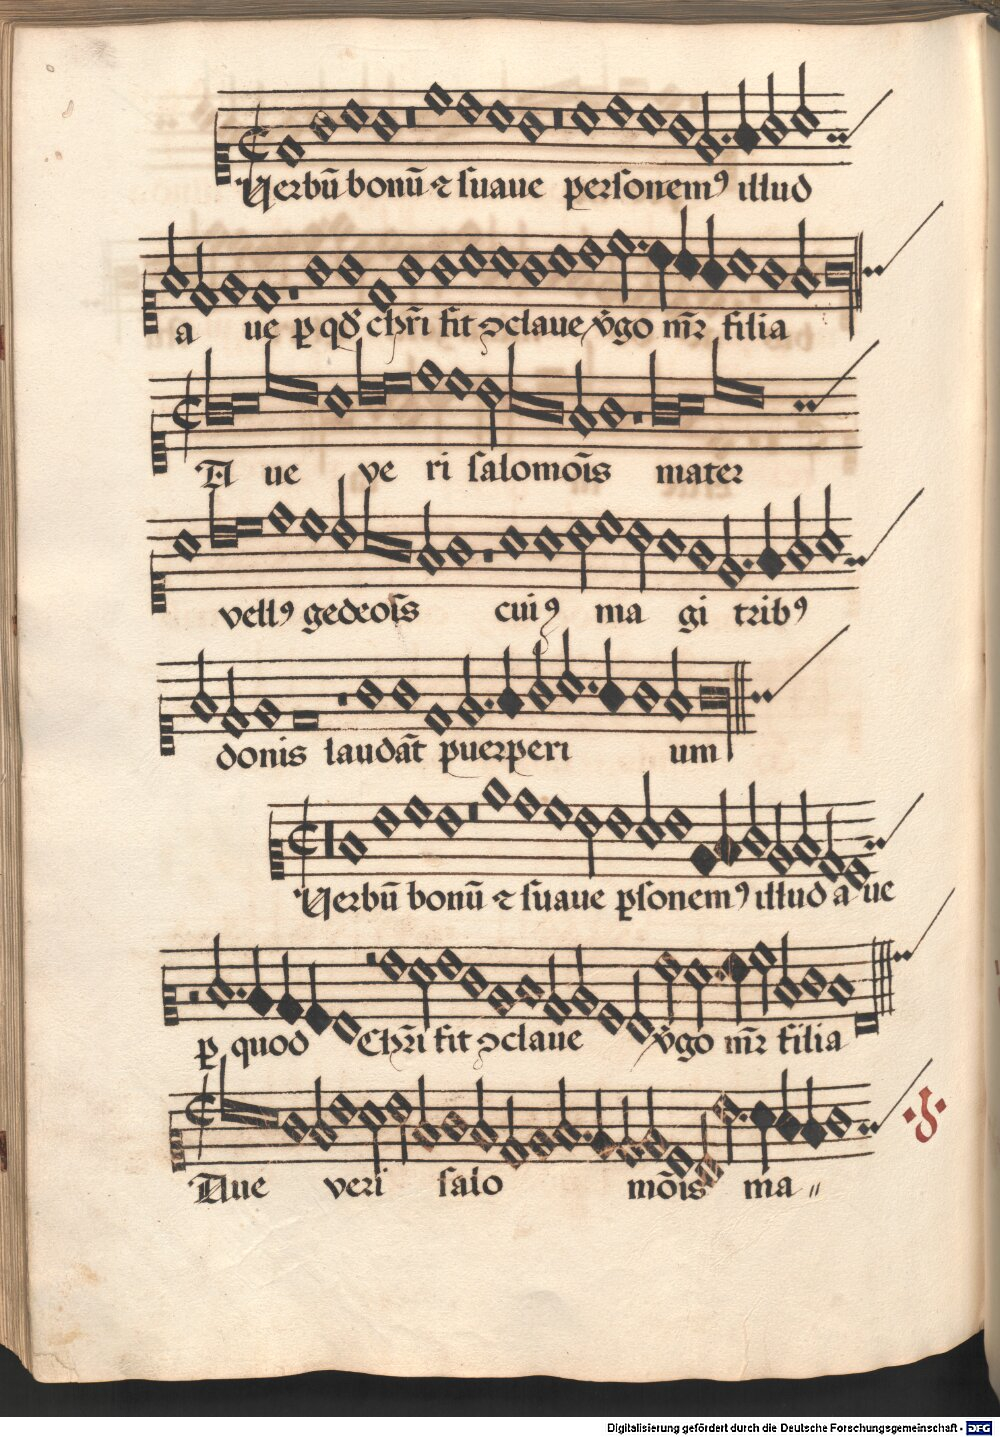 Verbū bonū ⁊ suaue personemꝰ illud
a ue ꝑ qđ chr̄i fit ↄclaue v̄go mr̄ filia
A ue ve ri salomōis mater
vellꝰ gedeoīs cuiꝰ ma gi tribꝰ
donis laudāt puerperi um
Verbū bonū ⁊ suaue ꝑsonemꝰ illud a ue
ꝑ quod Chr̄i fit ↄclaue v̄go mr̄ filia
Aue veri salo mōis ma〃
Digitalisierung gefördert durch die Deutsche Forschungsgemeinschaft - DFG